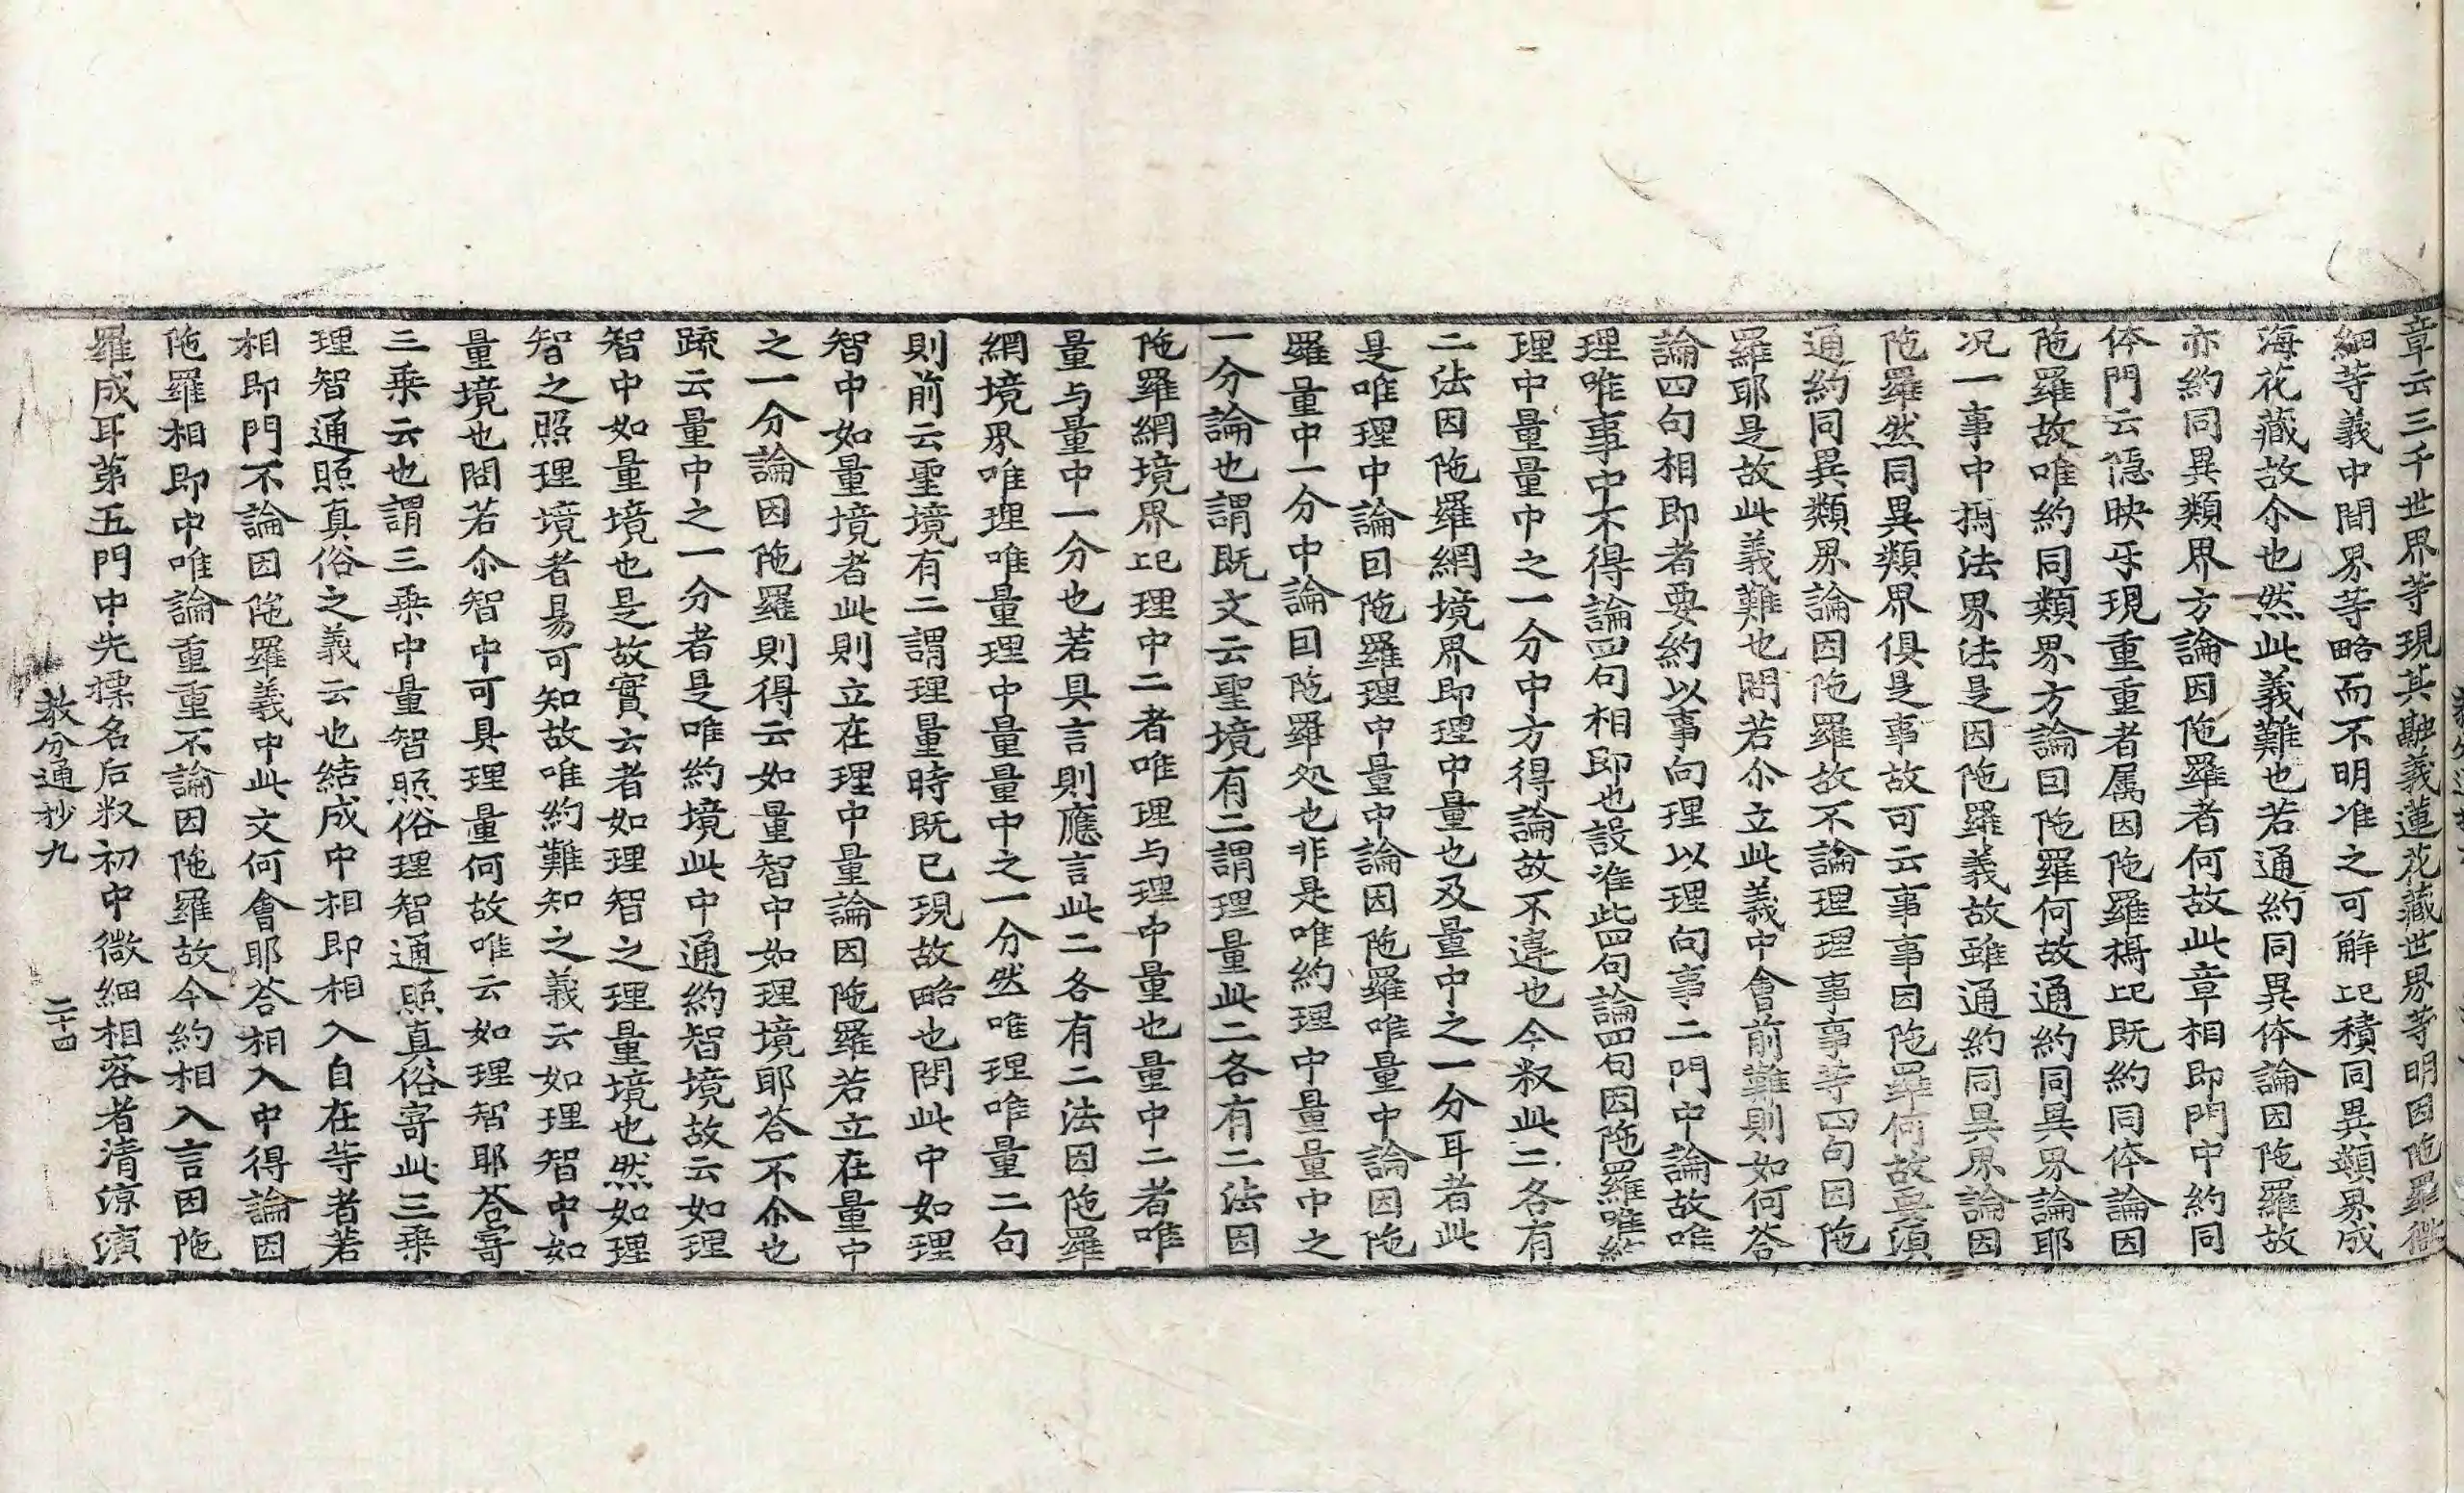 章云三千世界等現其融義蓮花藏世界等明因陁羅微
細等義中間界等略而不明准之可解记積同異類界成
海花藏故尒也然此義難也若通約同異体論因陁羅故
亦約同異類界方論因陁羅者何故此章相即門中約同
体門云隱映乐現重重者属因陁羅槗记既約同体論因
陁羅故唯約同類界方論因陁羅何故通約同異界論耶
况一事中㨿法界法是因陁羅義故雖通約同異界論因
陁羅然同異類界俱是事故可云事事因陁羅何故要須
通約同異類界論因陁羅故不論理理事事等四句因陁
羅耶是故此義難也問若尒立此義中會前難則如何答
論四句相即者要約以事向理以理向事二門中論故唯
理唯事中不得論四句相即也設准此四句論四句因陁羅唯約
理中量量中之一分中方得論故不違也今叙此二各有
二法因陁羅網境界即理中量也及量中之一分耳者此
是唯理中論因陁羅理中量中論因陁羅唯量中論因陁
羅量中一分中論因陁羅处也非是唯約理中量量中之
一分論也謂既文云聖境有二謂理量此二各有二法因
陁羅網境界记理中二者唯理与理中量也量中二者唯
量与量中一分也若具言則應言此二各有二法因陁羅
網境界唯理唯量理中量量中之一分然唯理唯量二句
則前云聖境有二謂理量時既已現故略也問此中如理
智中如量境者此則立在理中量論因陁羅若立在量中
之一分論因陁羅則得云如量智中如理境耶荅不尒也
䟽云量中之一分者是唯約境此中通約智境故云如理
智中如量境也是故實云者如理智之理量境也然如理
智之照理境者易可知故唯約難知之義云如理智中如
量境也問若尒智中可具理量何故唯云如理智耶荅寄
三乘云也謂三乘中量智照俗理智通照真俗寄此三乘
理智通照真俗之義云也結成中相即相入自在等者若
相即門不論因陁羅義中此文何會耶荅相入中得論因
陁羅相即中唯論重重不論因陁羅故今約相入言因陁
羅成耳第五門中先摽名后叙初中微細相容者清凉演
教分通抄九　二十四